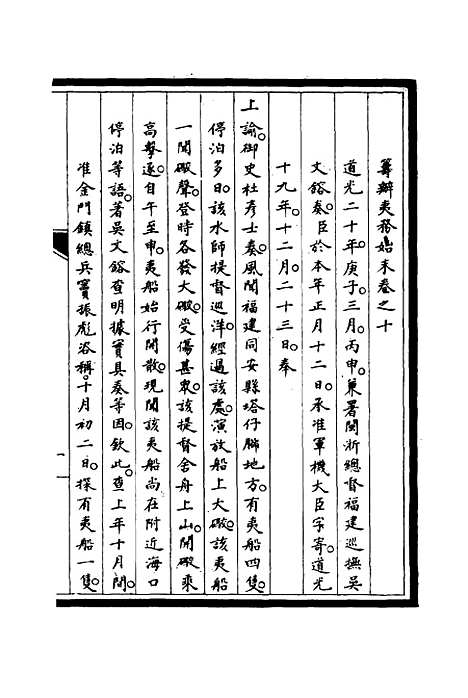 籌辦夷務始末卷之十
道光二十年。庚子。三月。丙申。兼署閩浙總督福建巡撫吳
文鎔奏。臣於本年正月十二日。承准軍機大臣字寄。道光
十九年。十二月。二十三日。奉
上諭。御史杜彥士奏。風聞福建同安縣塔仔腳地方。有夷船四隻。
停泊多日。該水師提督巡洋經過該處。演放船上大礮。該夷船
一聞礮聲。登時各發大礮。受傷甚衆。該提督舍舟上山。開礮乘
高擊逐。自午至申。夷船始行開散。現聞該夷船尚在附近海口
停泊等語。著吳文鎔查明據實具奏等因。欽此。查上年十月間。
准金門鎮總兵竇振彪咨稱。十月初二日。探有夷船一隻。
一